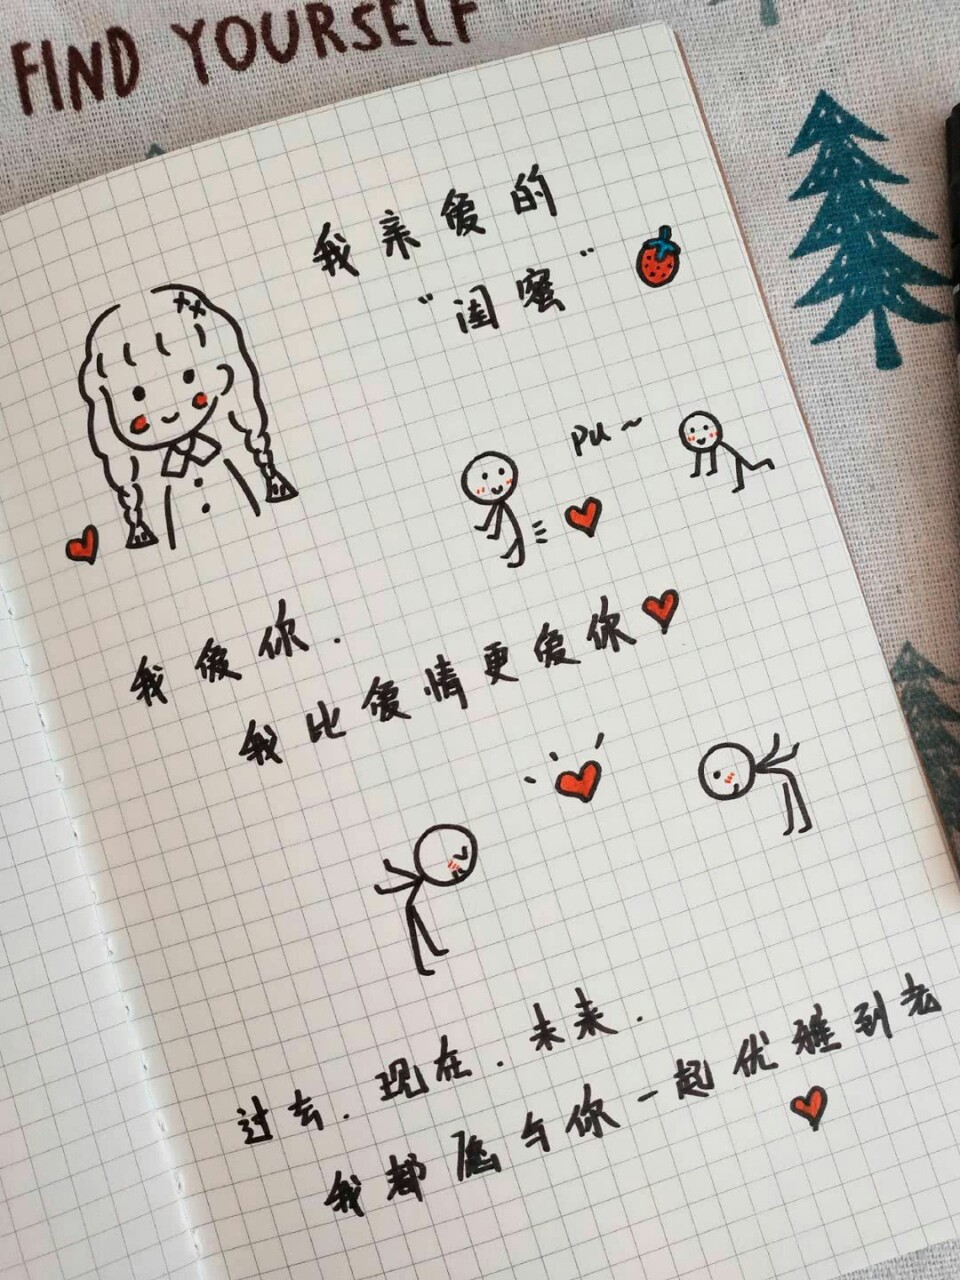 FIND YOURSELF
我亲爱的
"闺蜜"
pu~
我爱你.
我比爱情更爱你
过去.现在.未来.
我都愿与你一起优雅到老